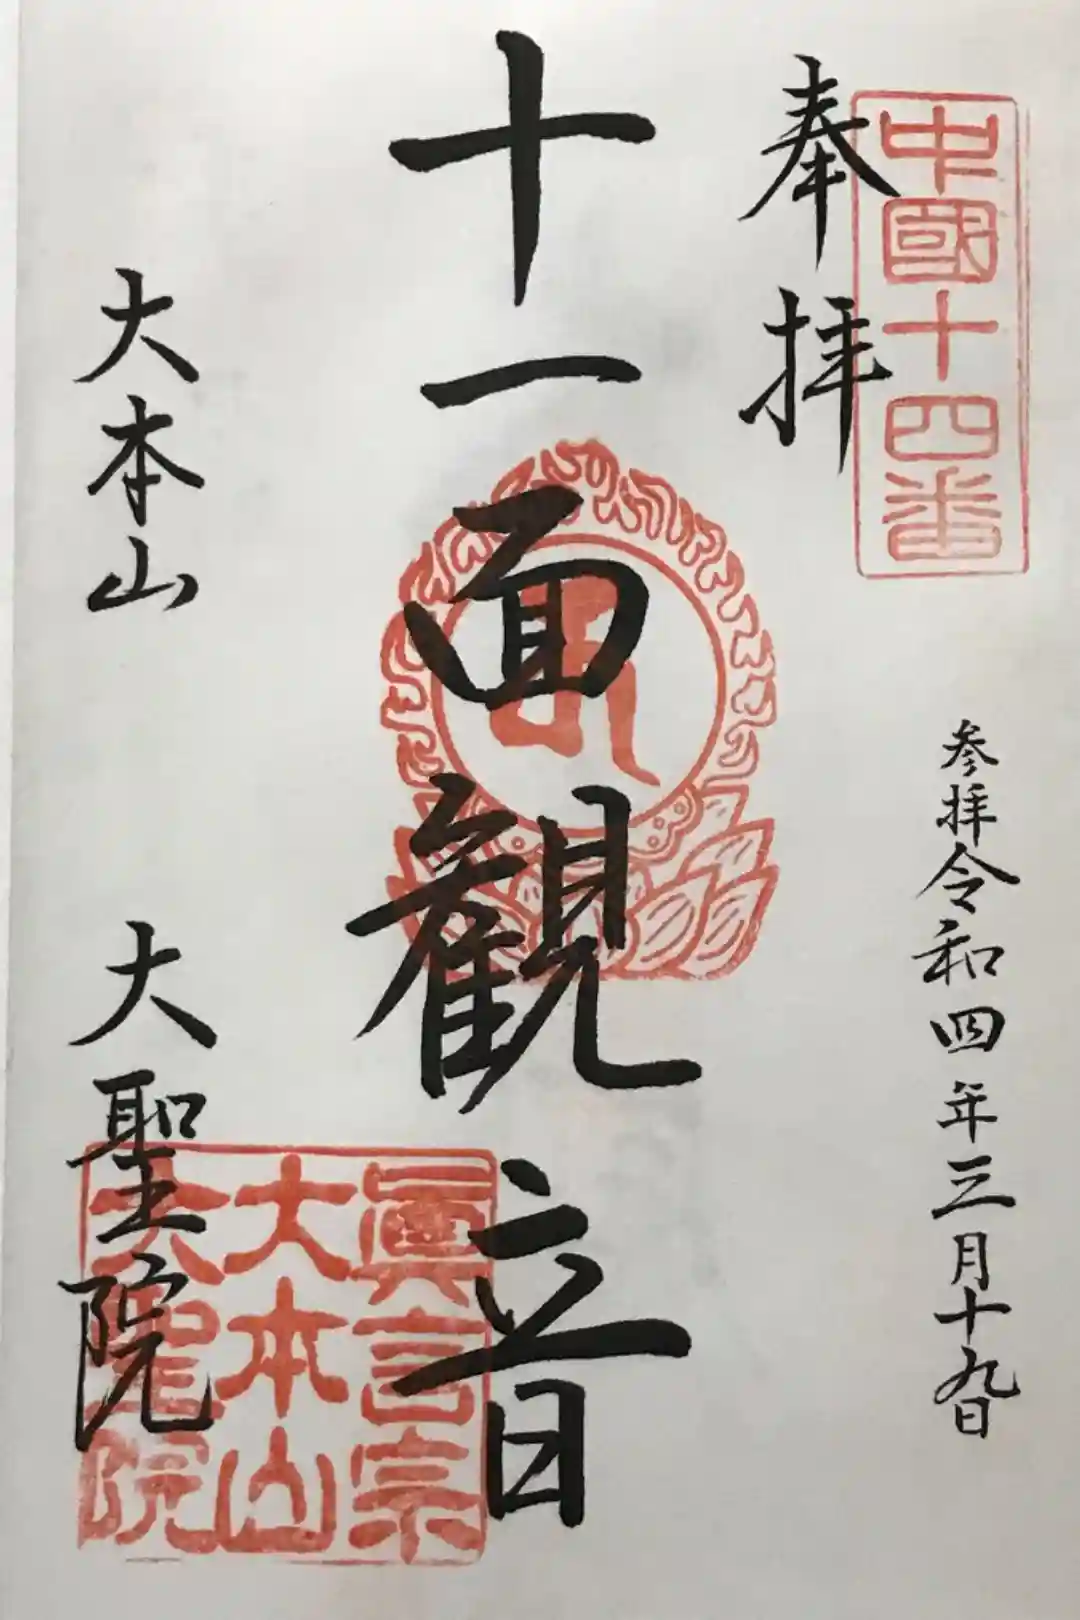 中國十四番
奉拝
参拝令和四年三月十九日
十一面観音
大本山 大聖院
眞言宗
大本山
大聖院